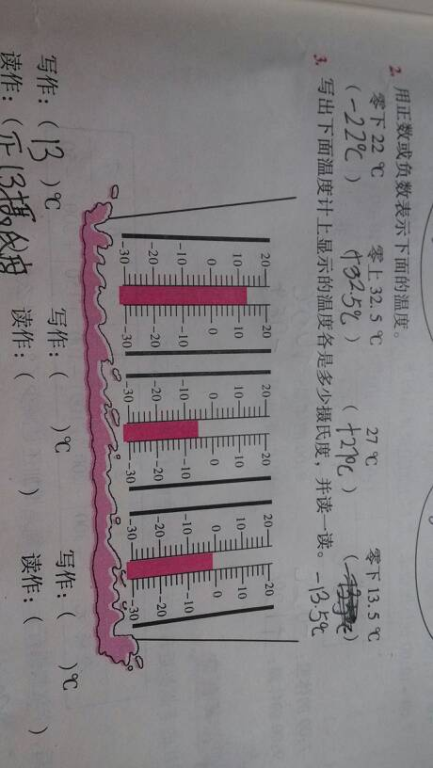 2. 用正数或负数表示下面的温度。
零下 22 ℃ 零上 32.5 ℃ 27 ℃ 零下 13.5 ℃
(-22℃) (+32.5℃) (+27℃) ( ) -13.5℃
3. 写出下面温度计上显示的温度各是多少摄氏度，并读一读。
20 20 20 20 20 20
10 10 10 10 10 10
0 0 0 0 0 0
-10 -10 -10 -10 -10 -10
-20 -20 -20 -20 -20 -20
-30 -30 -30 -30 -30 -30
写作：(13)℃ 写作：( )℃ 写作：( )℃
读作：(正13摄氏度 读作：( ) 读作：( )